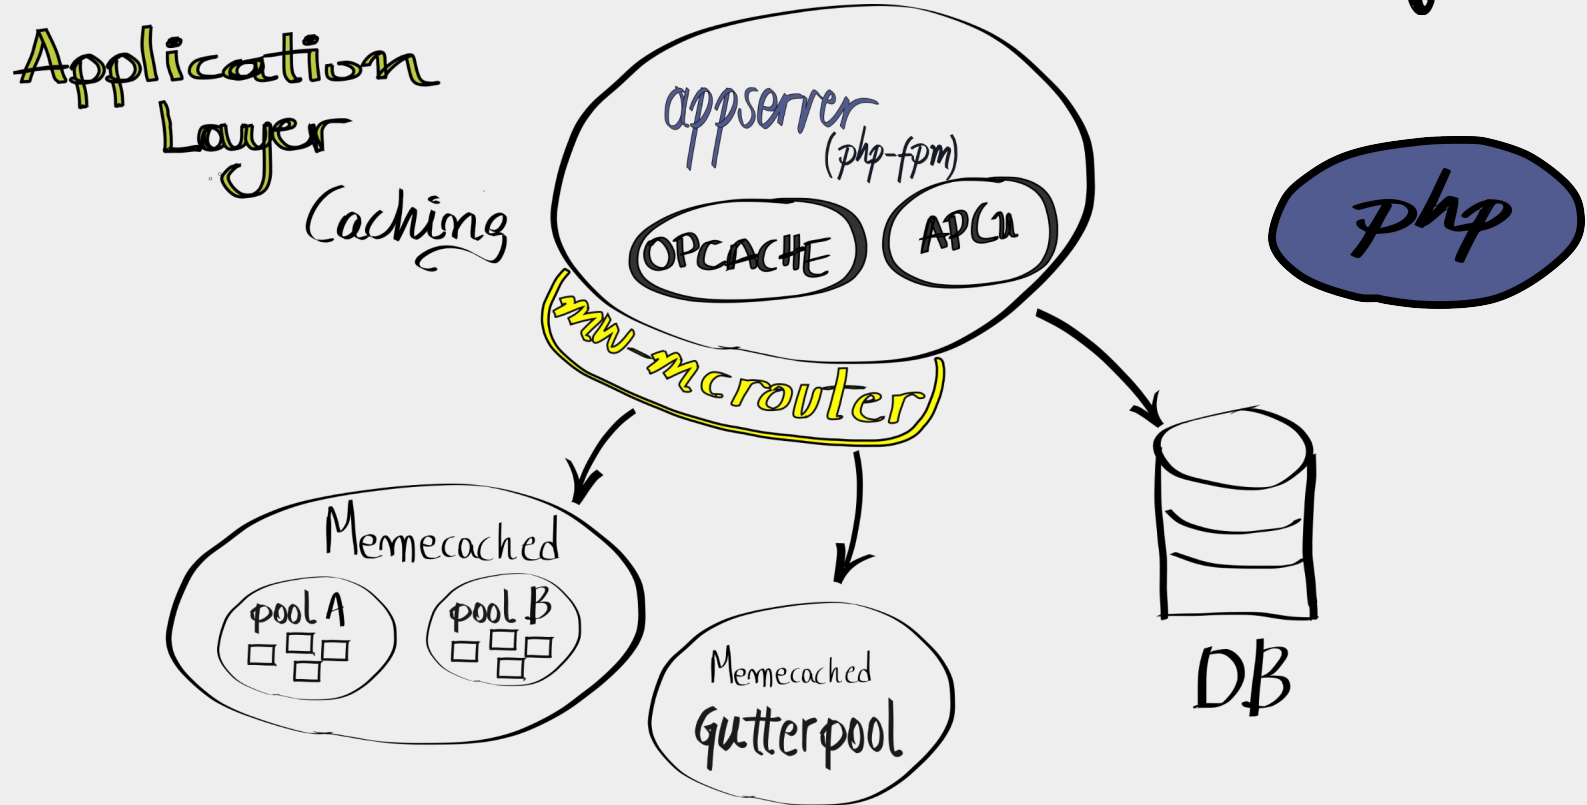 Application
Layer
Caching
appserver
(php-fpm)
OPCACHE
APCu
php
mw-mcrouter
Memecached
pool A
pool B
Memecached
Gutterpool
DB